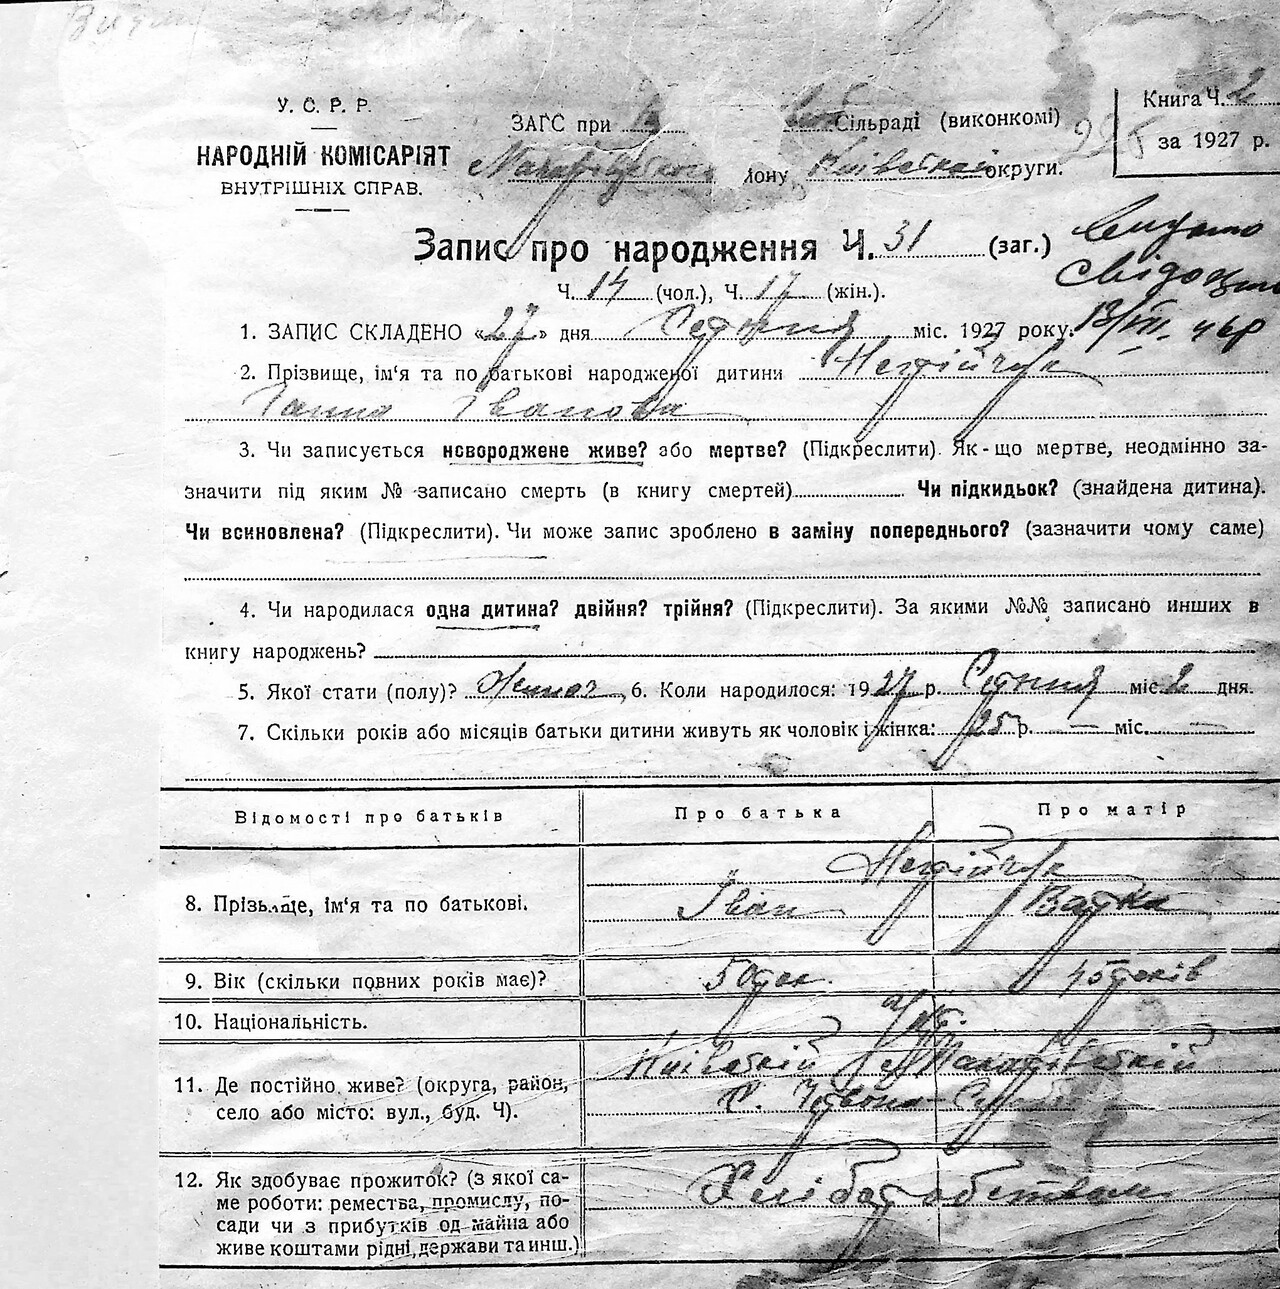 У. С. Р. Р.
НАРОДНІЙ КОМІСАРІЯТ
ВНУТРІШНІХ СПРАВ.
ЗАГС при Сільраді (виконкомі)
Макарівського йону Київської округи.
Книга Ч. 2
за 1927 р.
Запис про народження Ч. 31 (заг.)
Видано
Ч. 14 (чол.), Ч. 17 (жін.).
1. ЗАПИС СКЛАДЕНО «27» дня Серпня міс. 1927 року.
2. Прізвище, ім‘я та по батькові народженої дитини
Ганна Іванова
3. Чи записується новороджене живе? або мертве? (Підкреслити). Як-що мертве, неодмінно за-
значити під яким № записано смерть (в книгу смертей) Чи підкидьок? (знайдена дитина).
Чи всиновлена? (Підкреслити). Чи може запис зроблено в заміну попереднього? (зазначити чому саме)
4. Чи народилася одна дитина? двійня? трійня? (Підкреслити). За якими №№ записано инших в
книгу народжень?
5. Якої стати (полу)? 6. Коли народилося: 1927 р. Серпня міс. 2 дня.
7. Скільки років або місяців батьки дитини живуть як чоловік і жінка: 25 р. — міс. —
Відомості про батьків Про батька Про матір
8. Прізвище, ім‘я та по батькові.
Іван
9. Вік (скільки повних років має)? 50 рок. 45 років
10. Національність. укр.
11. Де постійно живе? (округа, район,
село або місто: вул., буд. Ч).
Київській Макарівській
с. Червона
12. Як здобуває прожиток? (з якої са-
ме роботи: ремества, промислу, по-
сади чи з прибутків од майна або
живе коштами рідні, держави та инш.)
Хліборобством